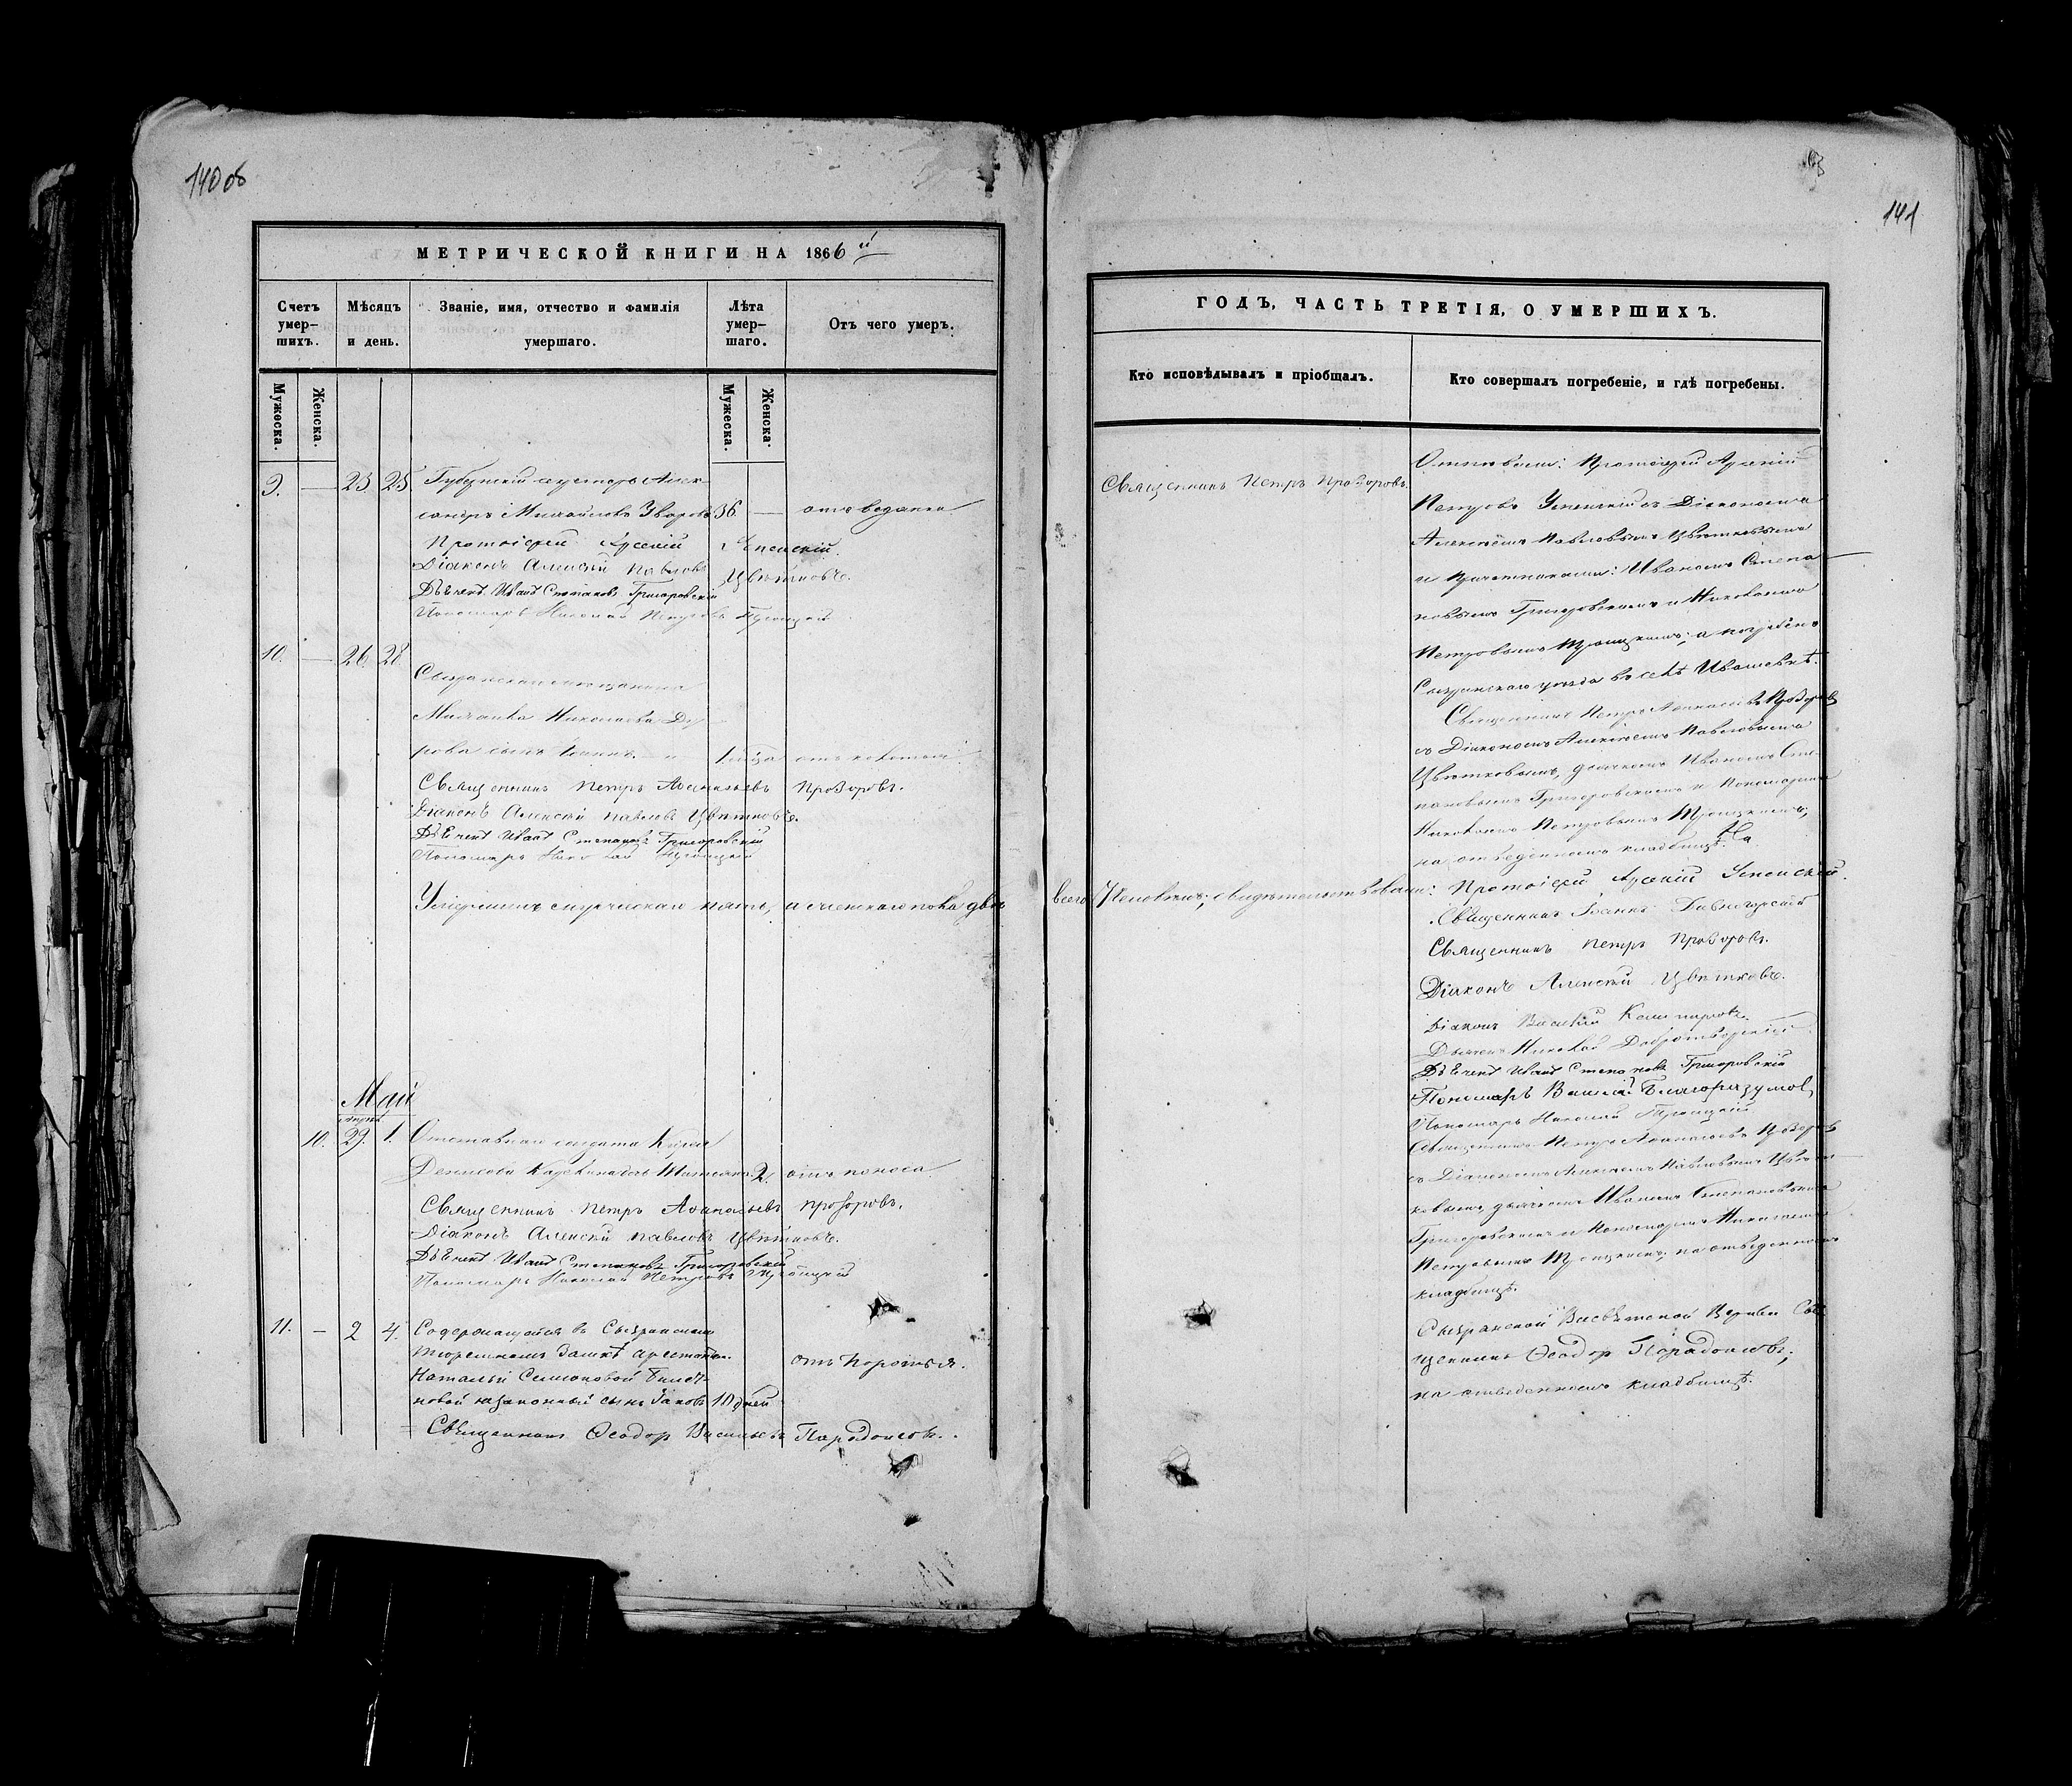 140 об
МЕТРИЧЕСКОЙ КНИГИ НА 1866 й
Счетъ умер-шихъ.
Мѣсяцъ и день.
Званіе, имя, отчество и фамилія умершаго.
Лѣта умер-шаго.
Отъ чего умеръ.
Мужеска. Женска.
Мужеска. Женска.
9. — 23 25 Губернскій Алек-
сандръ Михайловъ 36. — отъ водянки
Протоіерей Арсеній Успенскій.
Діаконъ Алексій Павловъ Цвѣтковъ.
Дьячекъ Иванъ Степановъ Григоровскій
Пономарь Николай Петровъ Троицкій
10. — 26 28
Сызранскаго мѣщанина
Михаила Николаева
рова сынъ Іоаннъ.
Священникъ Петръ Аѳанасьевъ Прозоровъ.
Діаконъ Алексій Павловъ Цвѣтковъ.
Дьячекъ Иванъ Степановъ Григоровскій
Пономарь Николай Троицкій
Умершихъ мужескаго пять, и женскаго пола двѣ
Май
Апрѣль
10. 29. 1. Отставнаго солдата
Денисова 2. отъ поноса
Священникъ Петръ Аѳанасьевъ Прозоровъ.
Діаконъ Алексій Павловъ Цвѣтковъ.
Дьячекъ Иванъ Степановъ Григоровскій
Пономарь Николай Петровъ Троицкій
11. — 2 4. Содержащейся въ Сызранскомъ
тюремномъ замкѣ арестантки
Натальи Семионовой
новой незаконный сынъ Іаковъ 10 дней отъ коросты.
Священникъ Ѳеодоръ Васильевъ Парадоксовъ.
141
ГОДЪ, ЧАСТЬ ТРЕТІЯ, О УМЕРШИХЪ.
Кто исповѣдывалъ и пріобщалъ.
Кто совершалъ погребеніе, и гдѣ погребены.
Священникъ Петръ Прозоровъ.
Отпѣвали: Протоіерей Арсеній
Петровъ Успенскій съ Діакономъ
Алексѣемъ Павловымъ Цвѣтковымъ
и Причетниками: Иваномъ Степа-
новымъ Григоровскимъ и Николаемъ
Петровымъ Троицкимъ; а погребенъ
Сызранскаго уѣзда въ селѣ Ивашевкѣ.
Священникъ Петръ Аѳанасьевъ Прозоровъ
съ Діакономъ Алексѣемъ Павловымъ
Цвѣтковымъ, дьячкомъ Иваномъ Сте-
пановымъ Григоровскимъ и Пономаремъ
Николаемъ Петровымъ Троицкимъ;
на отведенномъ кладбищѣ.
всего 7 человѣкъ; свидѣтельствовали: Протоіерей Арсеній Успенскій.
Священникъ Іоаннъ
Священникъ Петръ Прозоровъ.
Діаконъ Алексій Цвѣтковъ.
Діаконъ Василій
Дьячекъ Николай Добротворскій
Дьячекъ Иванъ Степановъ Григоровскій
Пономарь Василій Благоразумов
Пономарь Николай Троицкій
Священникъ Петръ Аѳанасьевъ Прозоровъ
съ Діакономъ Алексѣемъ Павловымъ Цвѣт-
ковымъ, дьячкомъ Иваномъ Степановымъ
Григоровскимъ и Пономаремъ Николаемъ
Петровымъ Троицкимъ; на отведенномъ
кладбищѣ.
Сызранской Всесвятской Церкви Свя-
щенникъ Ѳеодоръ Парадоксовъ;
на отведенномъ кладбищѣ.